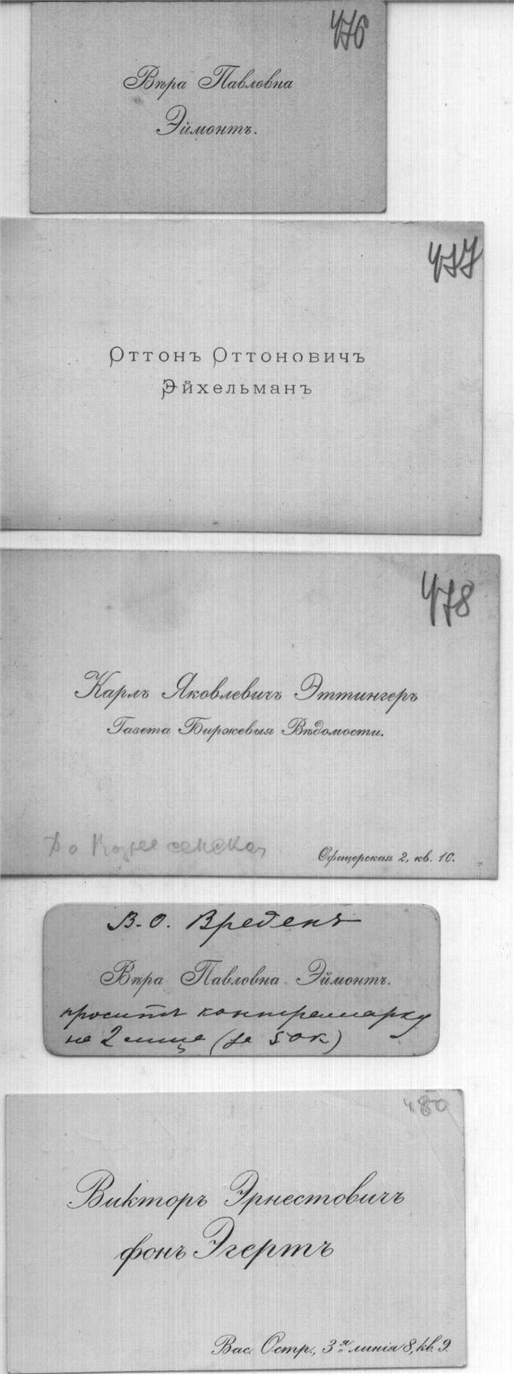 476
Вѣра Павловна
Эймонтъ.
477
Оттонъ Оттоновичъ
Эйхельманъ
478
Карлъ Яковлевичъ Эттингеръ
Газета Биржевыя Вѣдомости.
Офицерская 2, кв. 10.
В. О. Вреденъ
Вѣра Павловна Эймонтъ.
проситъ контрамарку
на 2 лица (за 50к)
480
Викторъ Эрнестовичъ
фонъ Эгертъ
Вас. Остр., 3я линія 8, кв. 9.